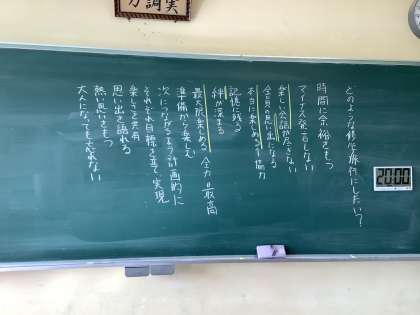 実調力
どのような修学旅行にしたい？
時間に余裕をもつ
マイナス発言しない
楽しい会話が尽きない
全員の思い出になる
本当に楽しめる 協力
記憶に残る
絆が深まる
最大限楽しめる 全力 最高
準備から楽しむ
次につながるよう計画的に
それぞれ目標を立て、実現
楽しさを共有
思い出を語れる
熱い思いをもつ
大人になっても忘れない
20:00